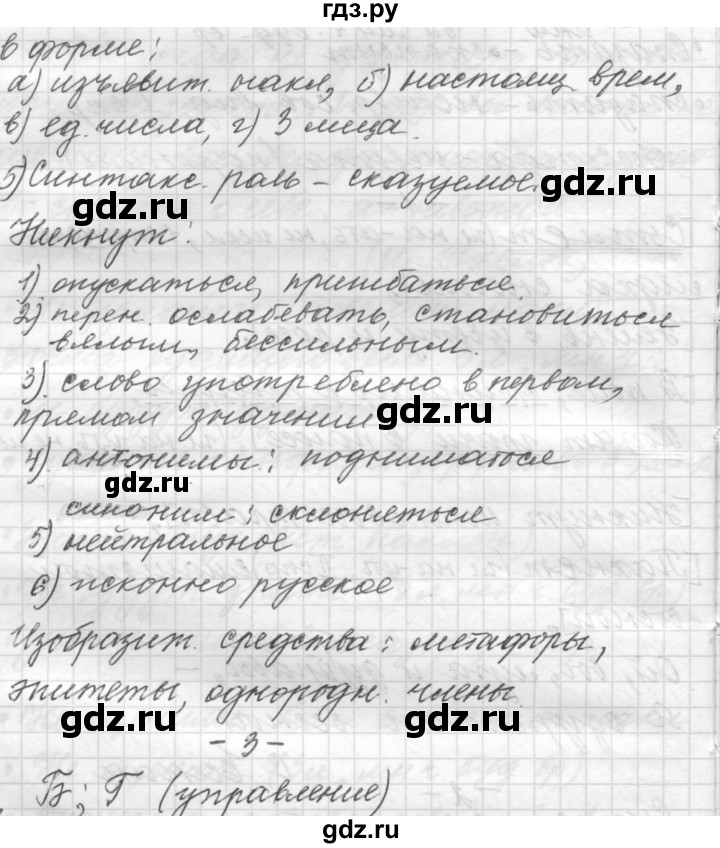 гдз.ру
в форме:
а) изъявит. накл, б) настоящ врем,
в) ед. числа, г) 3 лица.
5) Синтакс. роль – сказуемое.
gdz.ru
gdz.ru
Никнут:
1) опускаться, пришибаться.
2) перен. ослабевать, становиться
вялым, бессильным.
3) слово употреблено в первом,
прямом значении
gdz.ru
4) антонимы: подниматься
gdz.ru
синоним: склоняться
5) нейтральное
6) исконно русское
Изобразит. средства: метафоры,
эпитеты, однородн. члены.
gdz.ru
gdz.ru
- 3 -
Б; Г (управление)
gdz.ru